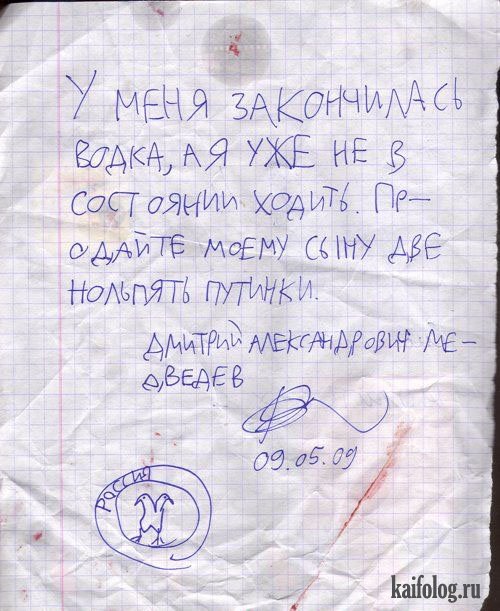 У МЕНЯ ЗАКОНЧИЛАСЬ
ВОДКА, А Я УЖЕ НЕ В
СОСТОЯНИИ ХОДИТЬ. ПР-
ОДАЙТЕ МОЕМУ СЫНУ ДВЕ
НОЛЬПЯТЬ ПУТИНКИ.
ДМИТРИЙ АЛЕКСАНДРОВИЧ МЕ-
ДВЕДЕВ
09.05.09
РОССИЯ
kaifolog.ru